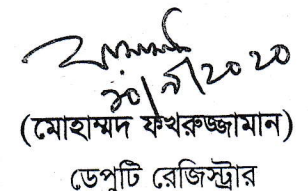 ১০/৯/২০২০
(মোহাম্মদ ফখরুজ্জামান)
ডেপুটি রেজিস্ট্রার